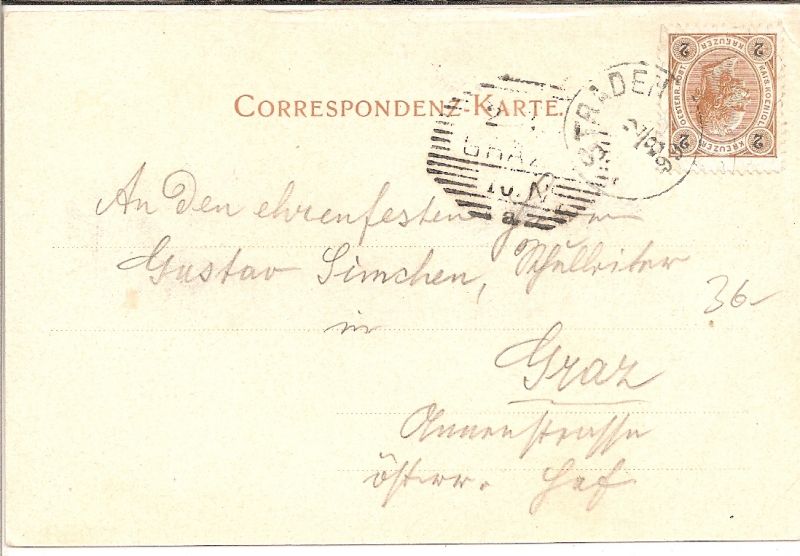 CORRESPONDENZ-KARTE.
2 KREUZER 2
KAIS. KOENIGL.
OESTERR. POST.
2 KREUZER 2
STRADEN
GRAZ
10. N
a
An den ehrenfesten
Gustav Simchen, Schulleiter
in
36-
Graz
Annenstrasse
österr. Hof